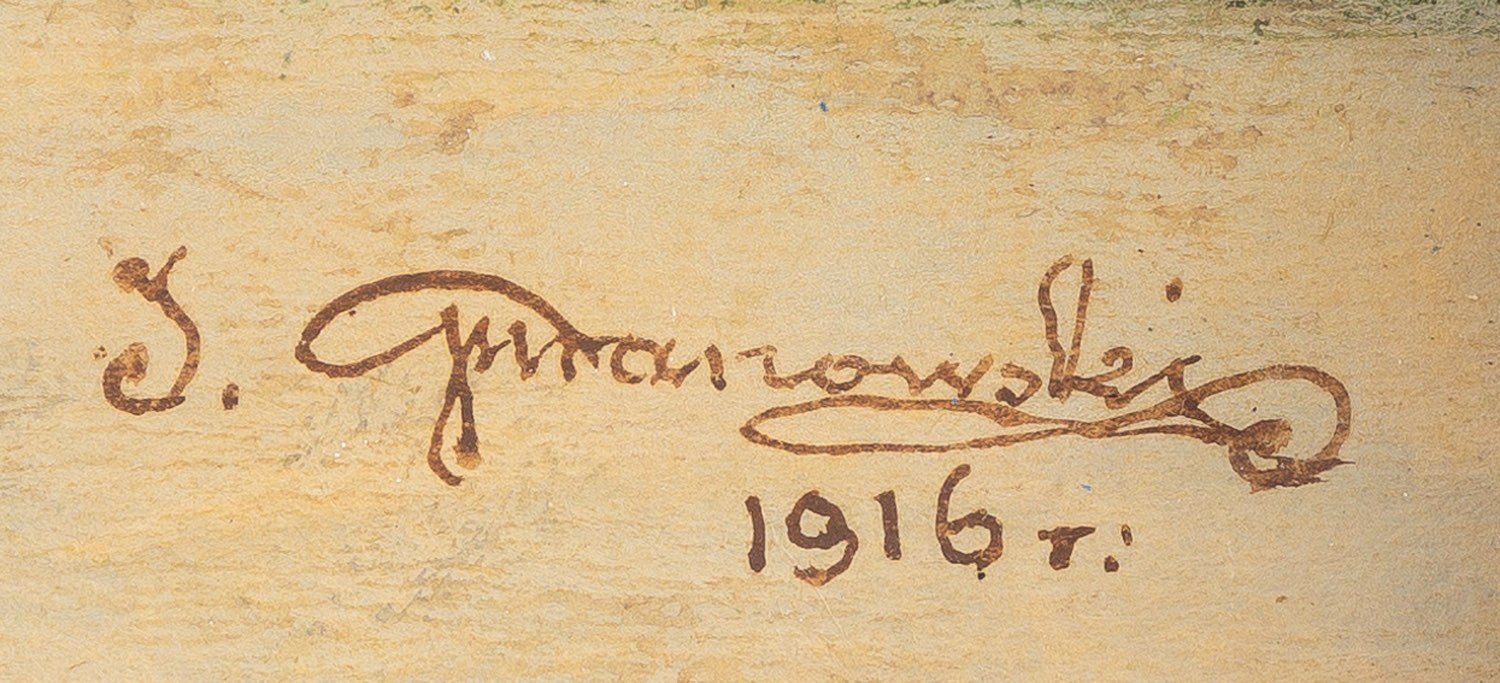 J. Guranowski
1916 r.